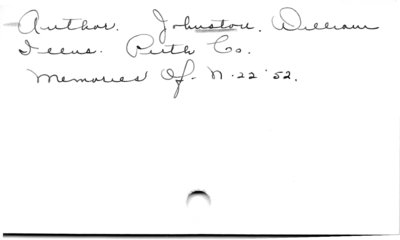 Author. Johnston, William
Deens. Pitts Co.
Memories Of - N. 22 '52.